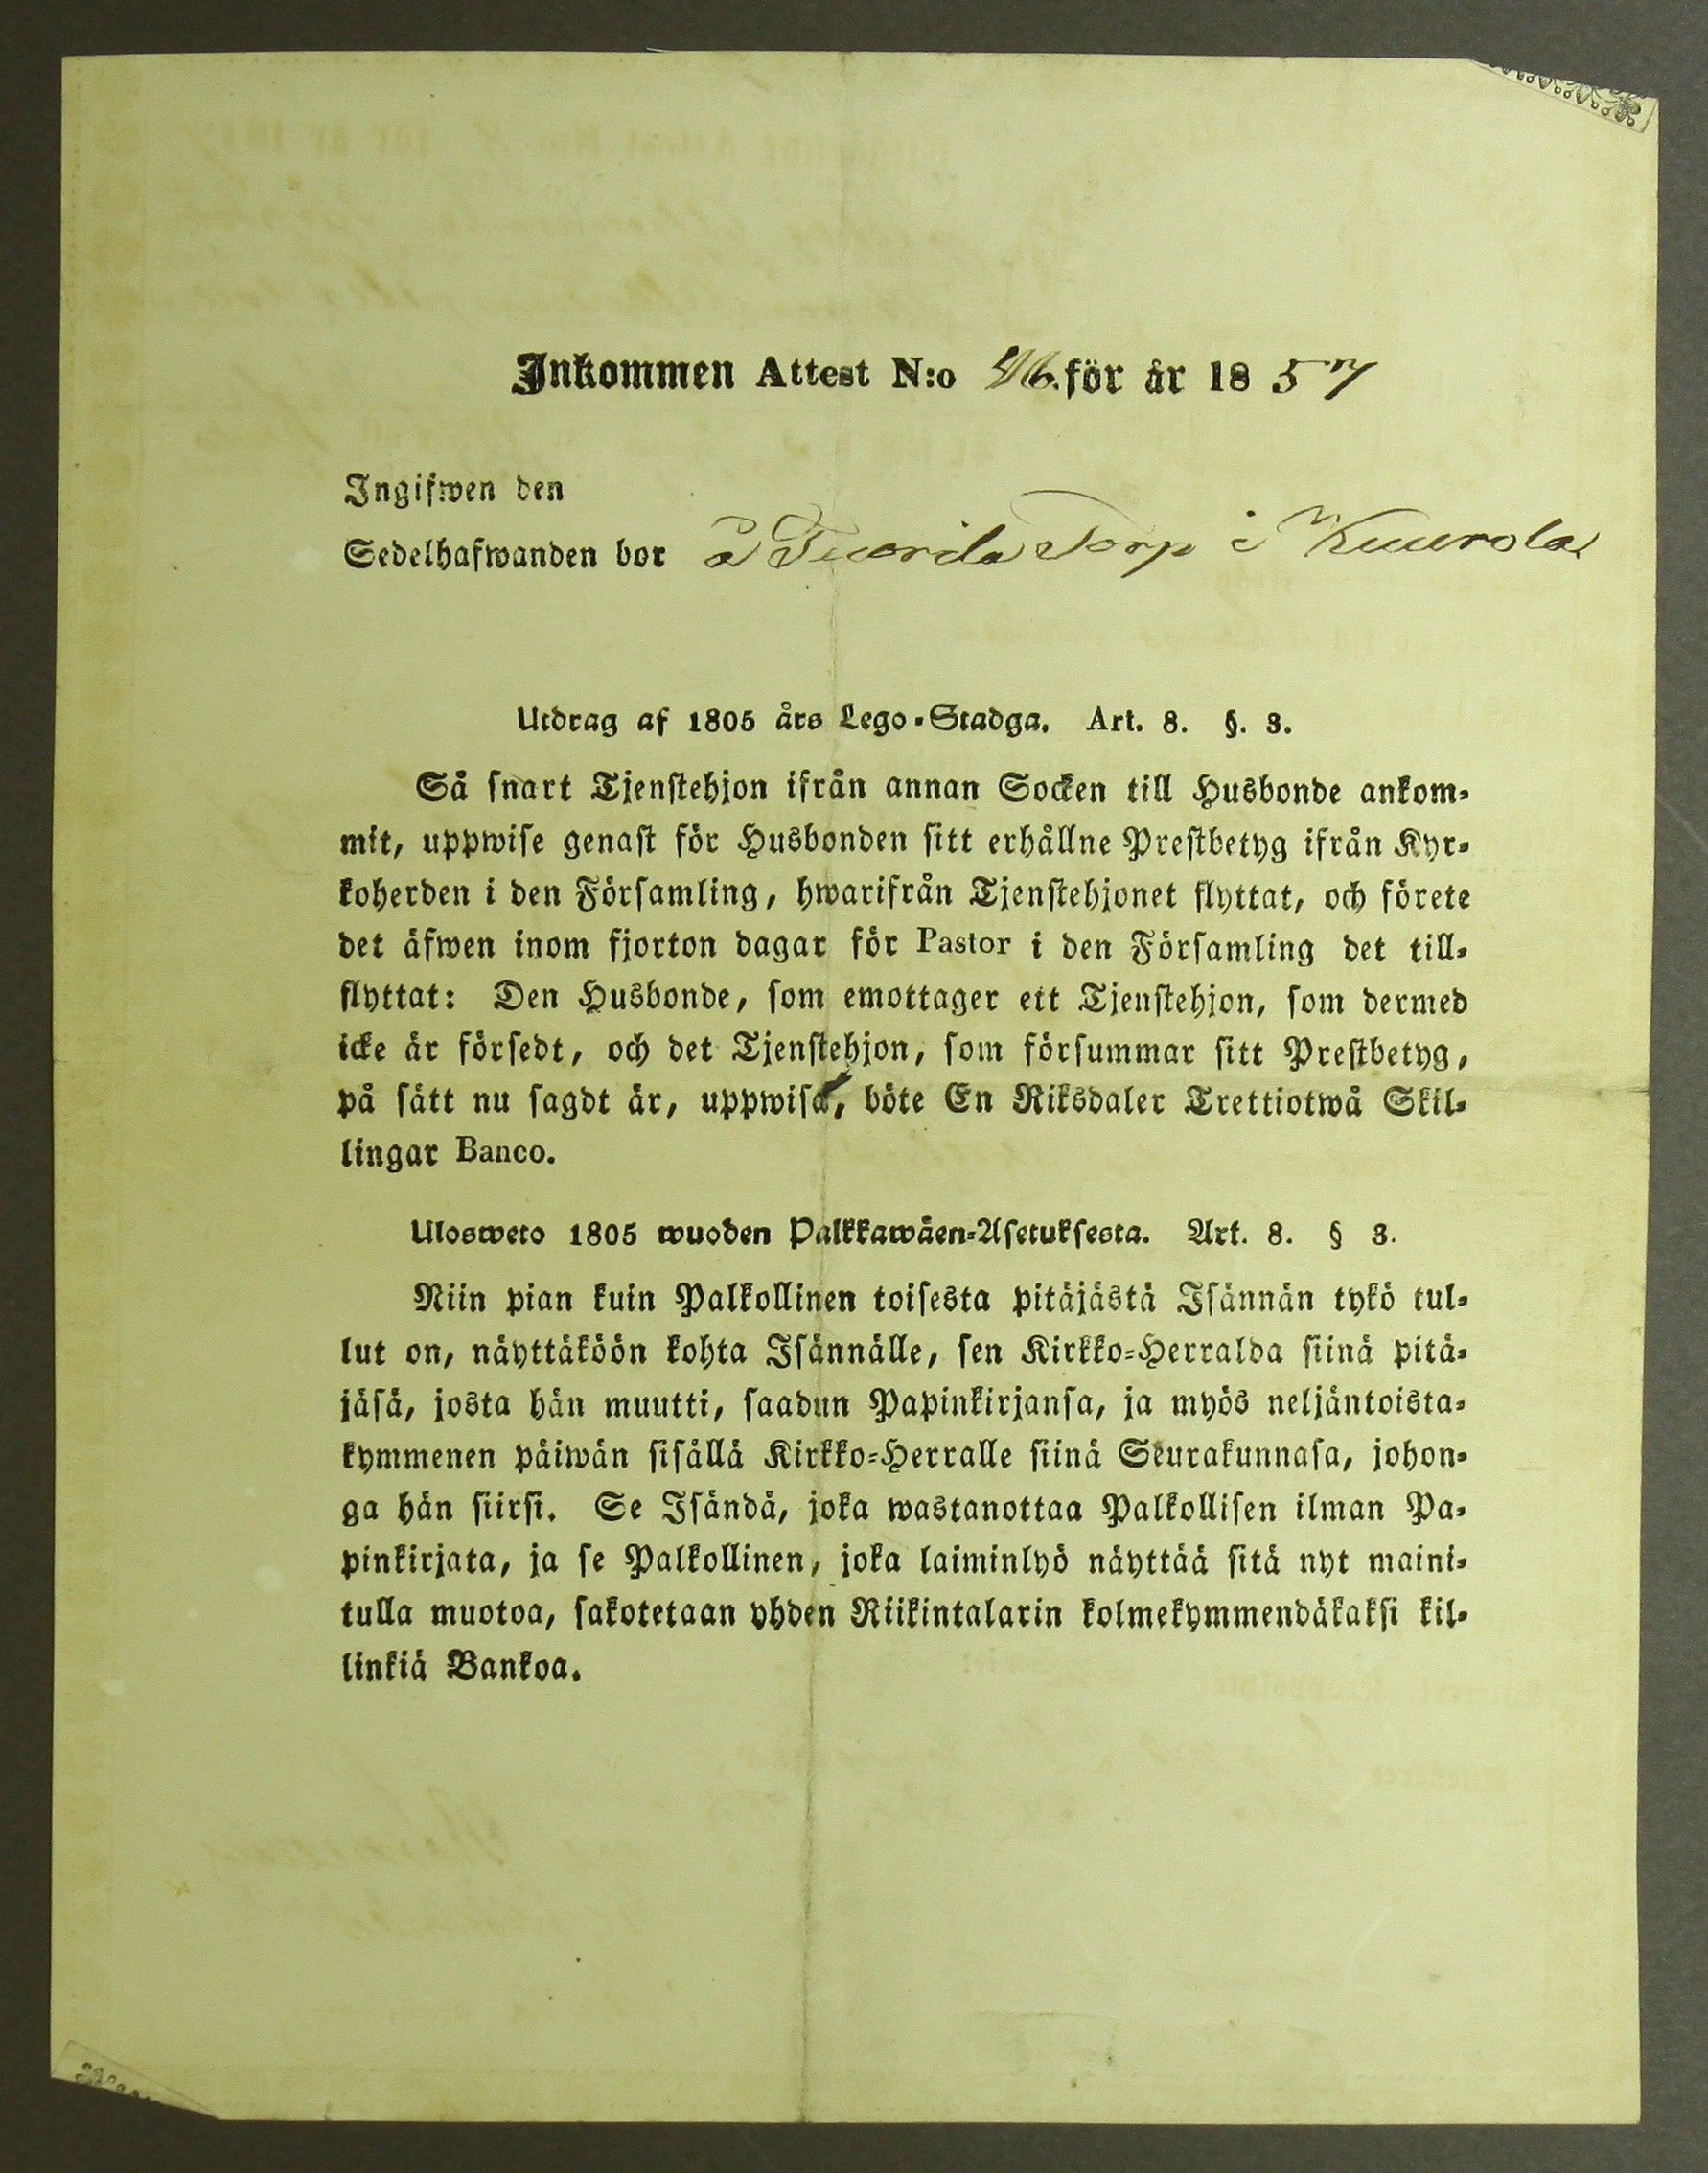 Inkommen Attest N:o 46. för år 1857
Ingifwen den
Sedelhafwanden bor å Tuorila Torp i Kuurola
Utdrag af 1805 års Lego-Stadga. Art. 8. §. 3.
Så snart Tjenstehjon ifrån annan Socken till Husbonde ankom-
mit, uppwise genast för Husbonden sitt erhållne Prestbetyg ifrån Kyr-
koherden i den Församling, hwarifrån Tjenstehjonet flyttat, och förete
det äfwen inom fjorton dagar för Pastor i den Församling det till-
flyttat: Den Husbonde, som emottager ett Tjenstehjon, som dermed
icke är försedt, och det Tjenstehjon, som försummar sitt Prestbetyg,
på sätt nu sagdt är, uppwisa, böte En Riksdaler Trettiotwå Skil-
lingar Banco.
Ulosweto 1805 wuoden Palkkawäen-Asetuksesta. Art. 8. § 3.
Niin pian kuin Palkollinen toisesta pitäjästä Isännän tykö tul-
lut on, näyttäköön kohta Isännälle, sen Kirkko-Herralda siinä pitä-
jäsä, josta hän muutti, saadun Papinkirjansa, ja myös neljäntoista-
kymmenen päiwän sisällä Kirkko-Herralle siinä Seurakunnasa, johon-
ga hän siirsi. Se Isändä, joka wastanottaa Palkollisen ilman Pa-
pinkirjata, ja se Palkollinen, joka laiminlyö näyttää sitä nyt maini-
tulla muotoa, sakotetaan yhden Riikintalarin kolmekymmendäkaksi kil-
linkiä Bankoa.